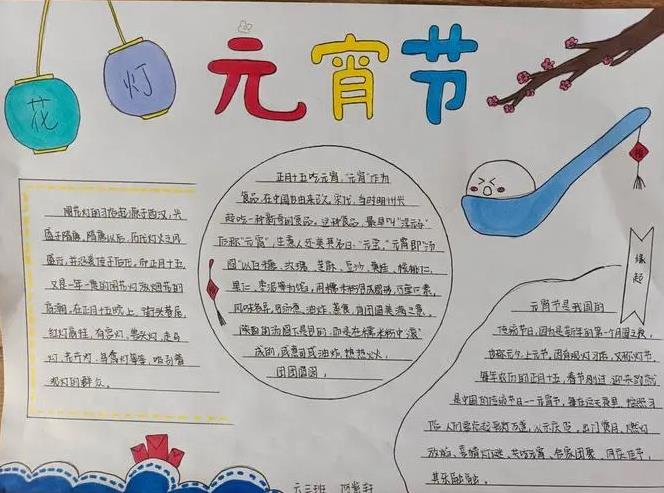 元宵节
花
灯
闹花灯的习俗起源于西汉，兴
盛于隋唐，隋唐以后，历代灯火之风
盛行，并沿袭传于后代，而正月十五
又是一年一度的闹花灯放烟花的
高潮，在正月十五晚上，街头巷尾，
红灯高挂，有宫灯，兽头灯，走马
灯，花卉灯，鸟禽灯等等，吸引着
观灯的群众。
正月十五吃元宵，“元宵”作为
食品，在中国由来已久，宋代，当时明州兴
起吃一种新奇的食品，这种食品，最早叫“浮元子”
后称“元宵”，生意人还美其名曰：“元宝”，“元宵即”汤
圆”以白糖、玫瑰、芝麻、豆沙、黄桂、核桃仁、
果仁、枣泥等为馅，用糯米粉包成圆形，可荤可素，
风味各异，可汤煮、油炸、蒸食，有团圆美满之意。
陕西的汤圆不是包的，而是在糯米粉中“滚”
成的，或煮司或油炸，热热火火，
团团圆圆。
缘起
元宵节是我国的
传统节日，因为是新年的第一个月圆之夜，
也称元夕、上元节，因有观灯习俗，又称灯节。
每年农历的正月十五，春节刚过，迎来的就
是中国的传统节日—元宵节，
人们
出门赏月、燃灯
放焰、喜猜灯谜、共吃元宵、合家团聚、同庆佳节，
其乐融融。
六三班